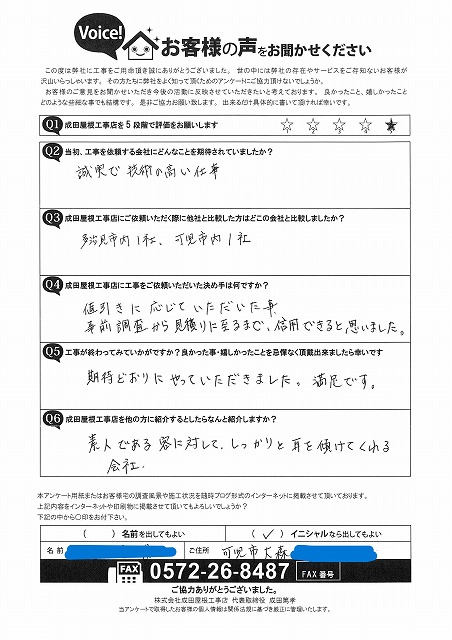 Voice! お客様の声をお聞かせください
この度は弊社に工事をご用命頂き誠にありがとうございました。世の中には弊社の存在やサービスをご存知ないお客様が
沢山いらっしゃいます。その方たちに弊社をよく知って頂くためのアンケートにご協力頂けないでしょうか。
お客様のご意見をお聞かせいただき今後の活動に反映させていただきたいと考えております。良かったこと、嬉しかったこと
どのような些細な事でも結構です。是非ご協力お願い致します。出来るだけ具体的に書いて頂ければ幸いです。
Q1 成田屋根工事店を5段階で評価をお願いします ☆ ☆ ☆ ☆ ★
Q2 当初、工事を依頼する会社にどんなことを期待されていましたか?
誠実で技術の高い仕事
Q3 成田屋根工事店にご依頼いただく際に他社と比較した方はどこの会社と比較しましたか?
多治見市内1社、可児市内1社
Q4 成田屋根工事店に工事をご依頼いただいた決め手は何ですか?
値引きに応じていただいた事
事前調査から見積りに至るまで、信用できると思いました。
Q5 工事が終わってみていかがですか?良かった事・嬉しかったことを忌憚なく頂戴出来ましたら幸いです
期待どおりにやっていただきました。満足です。
Q6 成田屋根工事店を他の方に紹介するとしたらなんと紹介しますか?
素人である客に対して、しっかりと耳を傾けてくれる
会社.
本アンケート用紙またはお客様宅の調査風景や施工状況を随時ブログ形式のインターネットに掲載させて頂いております。
上記内容をインターネットや印刷物に掲載させて頂いてもよろしいでしょうか?
下記の中から○印をお付け下さい。
( ) 名前を出してもよい ( ✓ ) イニシャルなら出してもよい
名前 ご住所 可児市大森
FAX 0572-26-8487 FAX番号
ご協力ありがとうございました。
株式会社成田屋根工事店 代表取締役 成田篤孝
当アンケートで取得したお客様の個人情報は関係法規に基づき厳正に管理いたします。